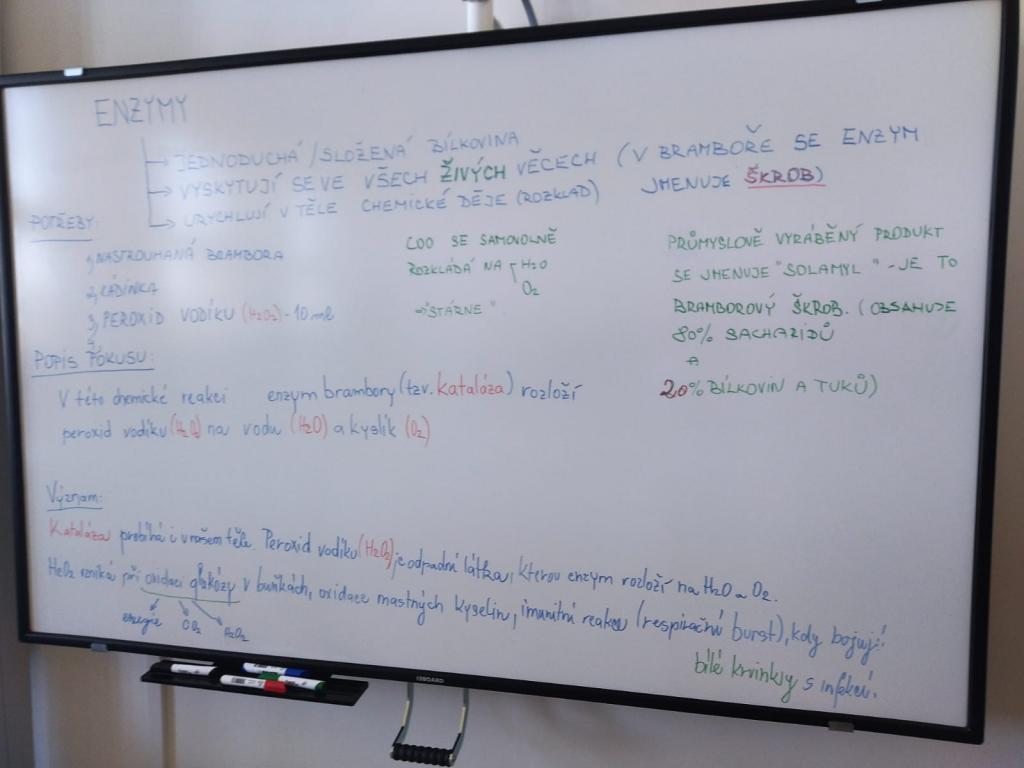 ENZYMY
JEDNODUCHÁ / SLOŽENÁ BÍLKOVINA
VYSKYTUJÍ SE VE VŠECH ŽIVÝCH VĚCECH (V BRAMBOŘE SE ENZYM
JMENUJE ŠKROB)
URYCHLUJÍ V TĚLE CHEMICKÉ DĚJE (ROZKLAD)
POTŘEBY:
1, NASTROUHANÁ BRAMBORA
2, KÁDINKA
3, PEROXID VODÍKU (H2O2) - 10 ml
4,
COO SE SAMOVOLNĚ
ROZKLÁDÁ NA H2O
O2
⇒ "STÁRNE"
PRŮMYSLOVĚ VYRÁBĚNÝ PRODUKT
SE JMENUJE "SOLAMYL" - JE TO
BRAMBOROVÝ ŠKROB. (OBSAHUJE
80% SACHARIDŮ
A
20% BÍLKOVIN A TUKŮ)
POPIS POKUSU:
V této chemické reakci enzym brambory (tzv. Kataláza) rozloží
peroxid vodíku (H2O2) na vodu (H2O) a kyslík (O2)
Význam:
Kataláza probíhá i v našem těle. Peroxid vodíku (H2O2) je odpadní látka, kterou enzym rozloží na H2O a O2.
H2O2 vzniká při oxidaci glukózy v buňkách, oxidace mastných kyselin, imunitní reakce (respirační burst), kdy bojují
energie CO2 H2O2
bílé krvinky s infekcí.